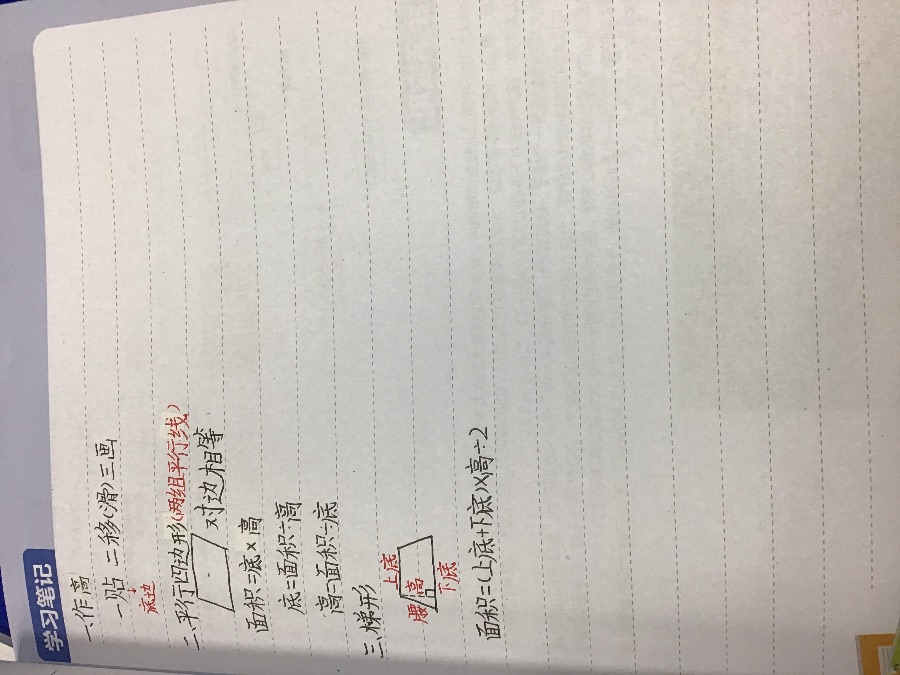 学习笔记
一、作高
一贴 二移(滑)三画
↓
底边
二、平行四边形(两组平行线)
对边相等
面积=底×高
底=面积÷高
高=面积÷底
三、梯形
上底
腰 高
下底
面积=(上底+下底)×高÷2